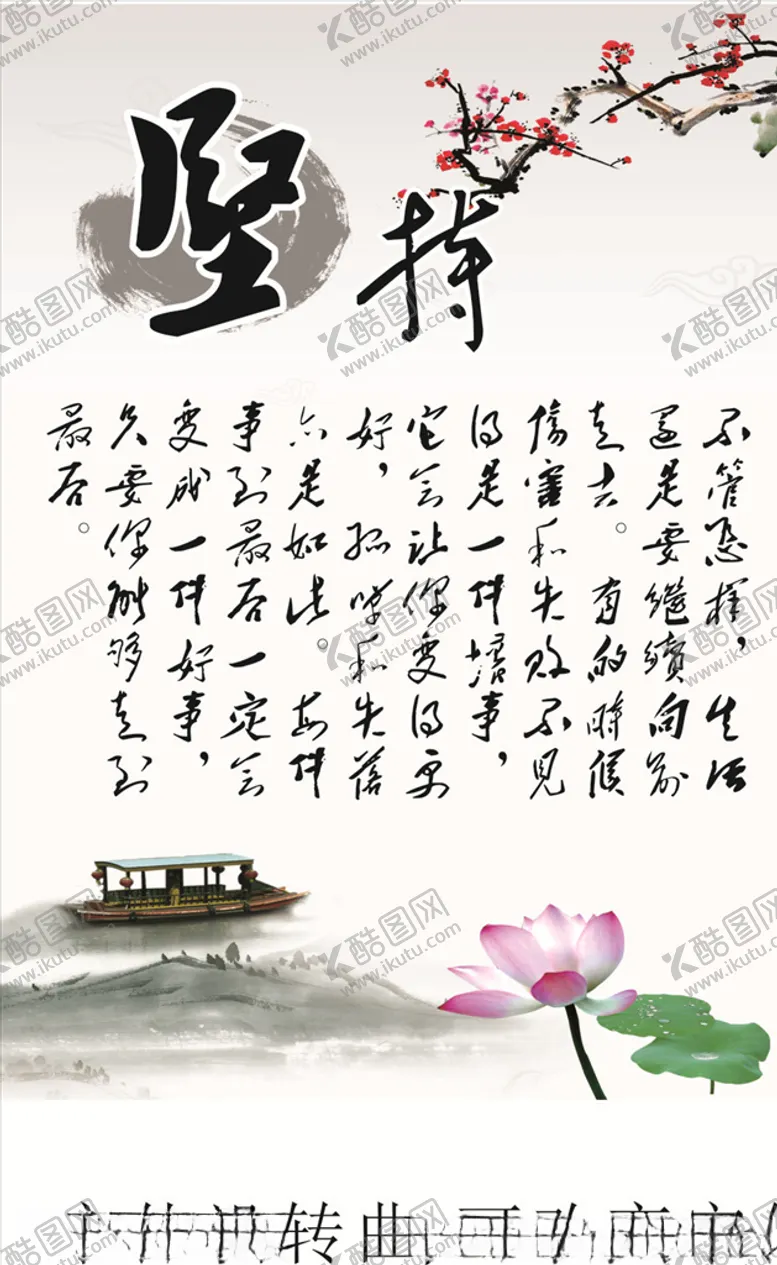 坚持
不管怎样，生活
還是要繼續向前
走去。有的時候
傷害和失败不見
得是一件壞事，
它会让你变得更
好，孤单和失落
亦是如此。每件
事到最后一定会
变成一件好事，
只要你能够走到
最后。
转曲
酷图网
www.ikutu.com